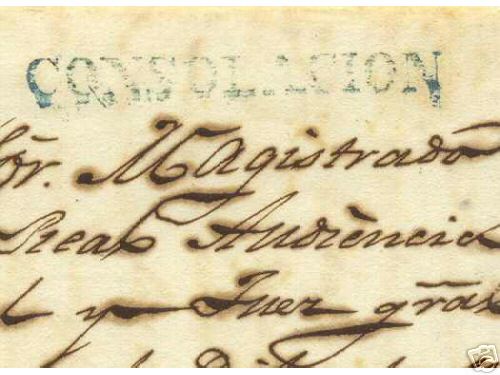 CONSOLACION
Sór. Magistrado
Real Audiència
l y Juez grãs